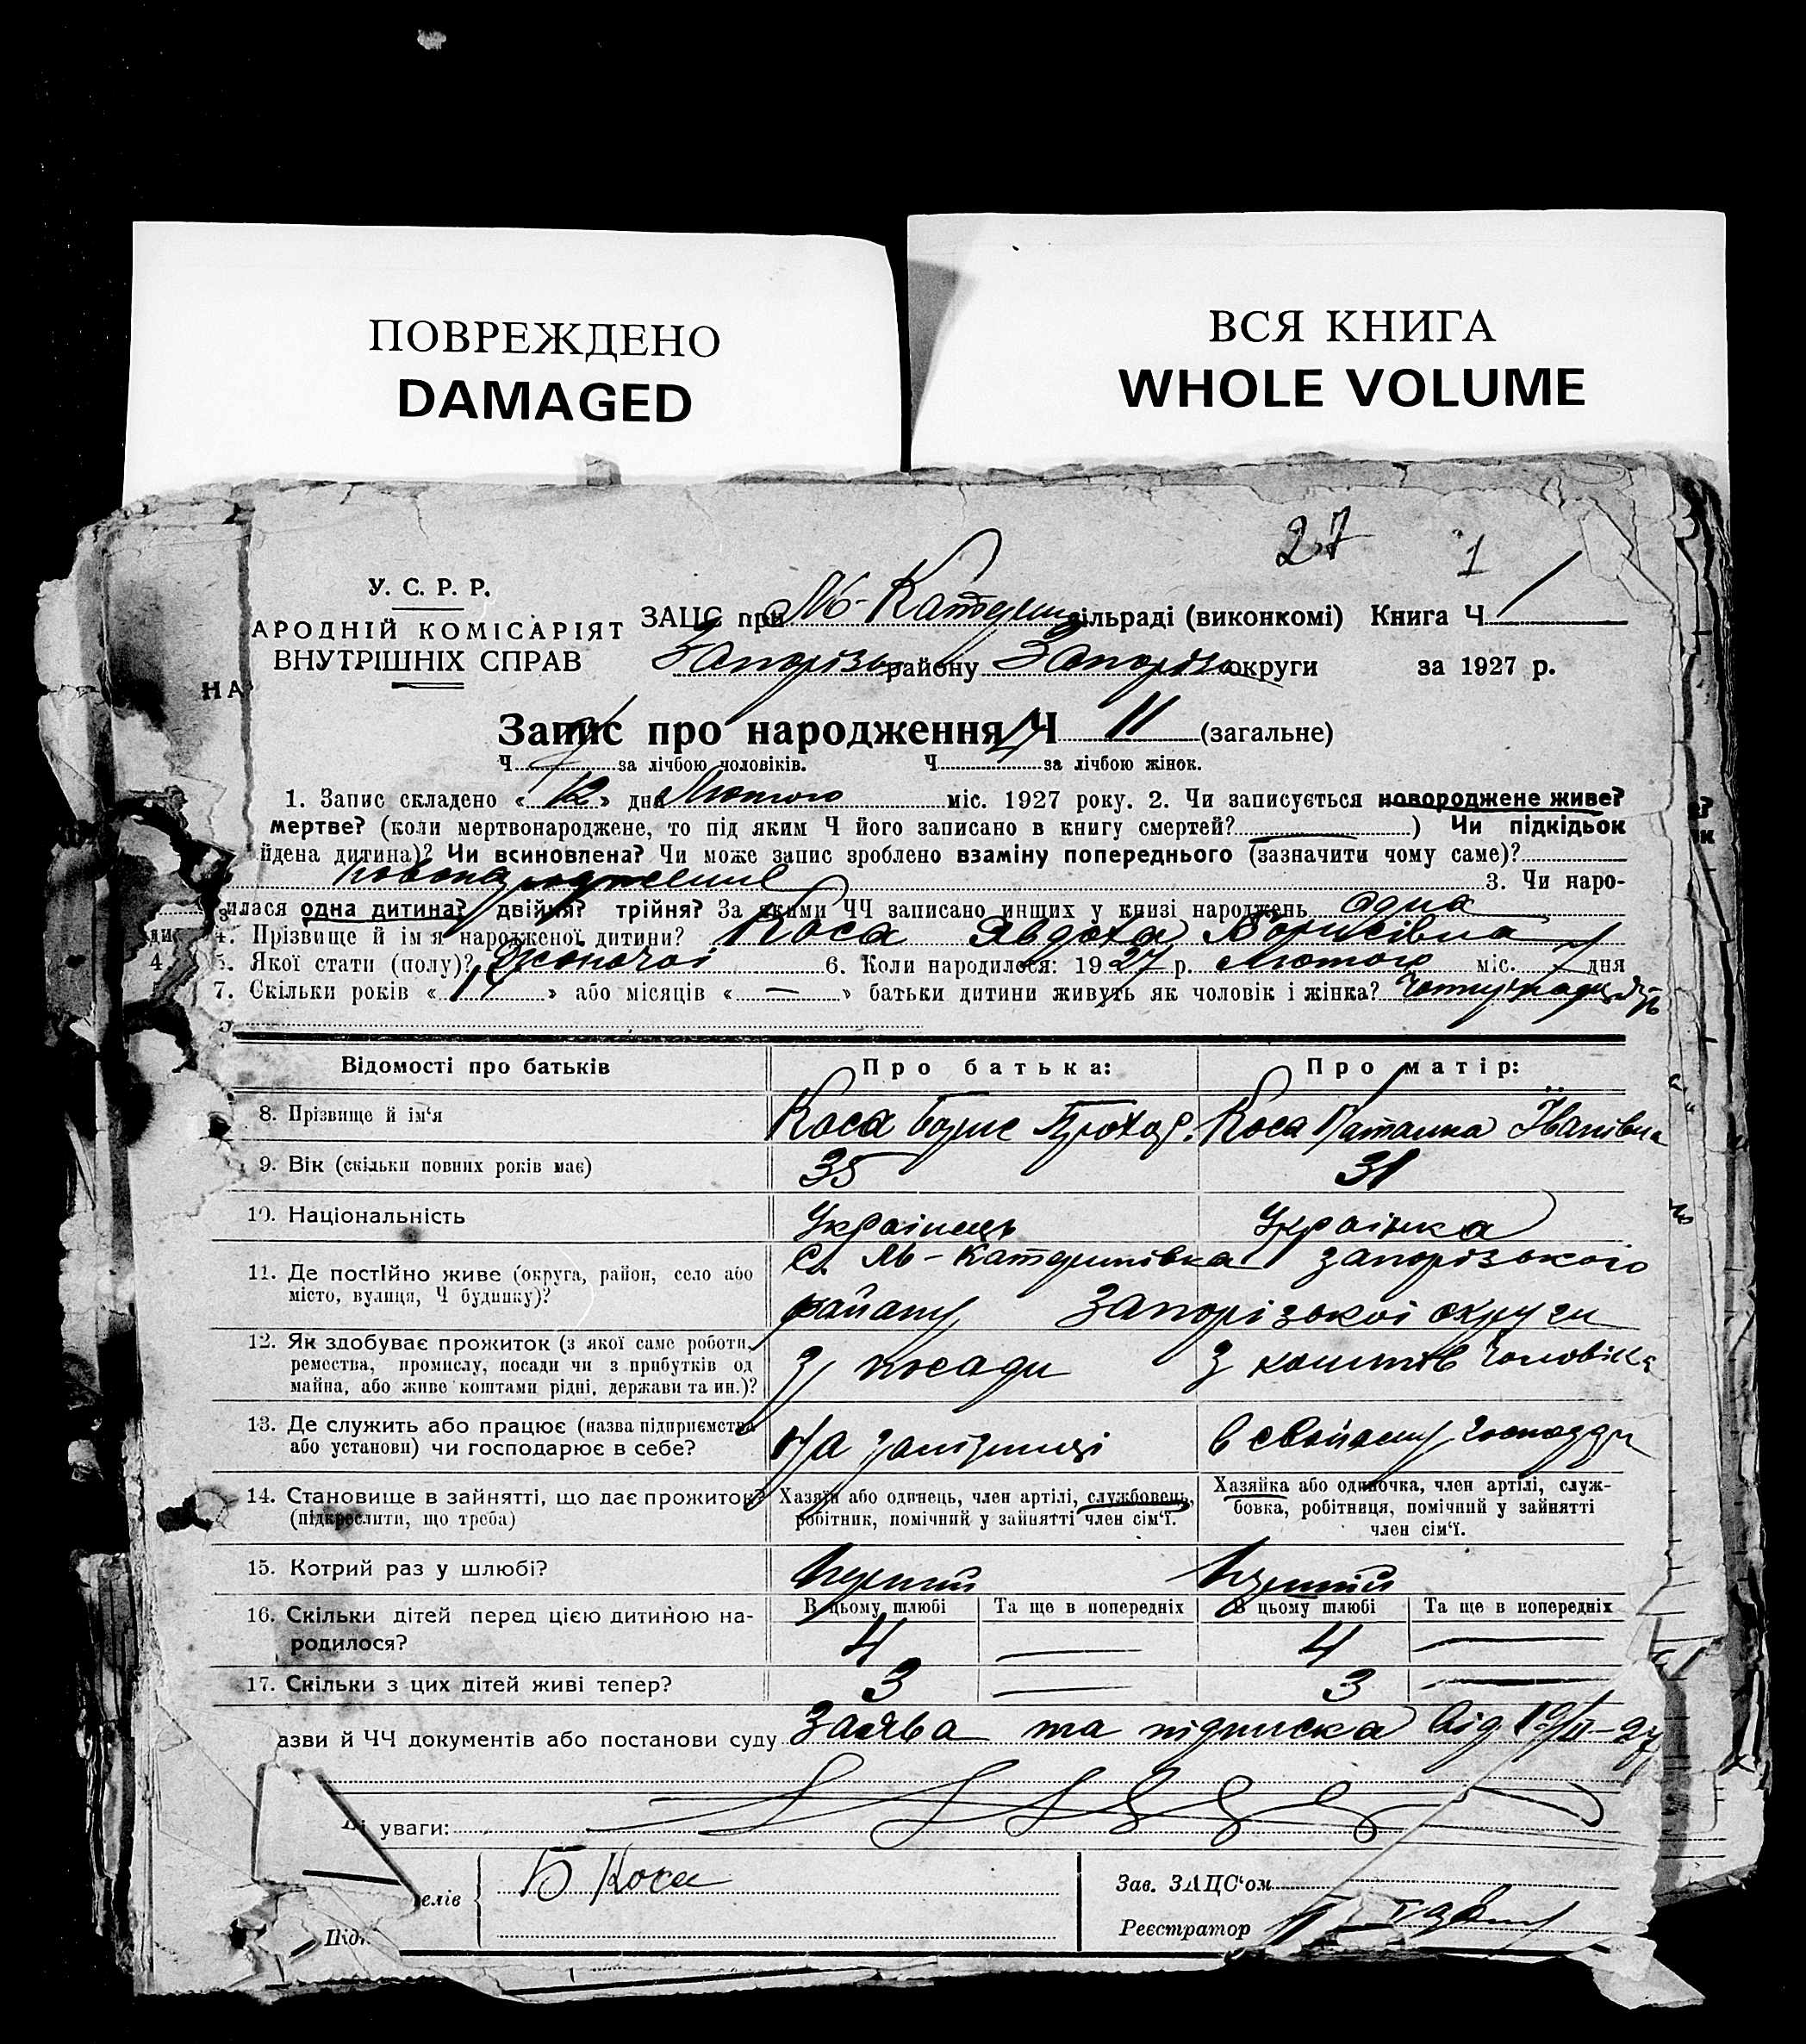 ПОВРЕЖДЕНО
DAMAGED
ВСЯ КНИГА
WHOLE VOLUME
27 1
У. С. Р. Р.
АРОДНІЙ КОМІСАРІЯТ
ВНУТРІШНІХ СПРАВ
НА
ЗАЦС при Катерин сільраді (виконкомі) Книга Ч 1
Запорізьк району Запоріз округи за 1927 р.
Запис про народження Ч 11 (загальне)
Ч 7 за лічбою чоловіків. Ч 4 за лічбою жінок.
1. Запис складено « 12 » дня Лютого міс. 1927 року. 2. Чи записується новороджене живе?
мертве? (коли мертвонароджене, то під яким Ч його записано в книгу смертей? ) Чи підкідьок
йдена дитина)? Чи всиновлена? Чи може запис зроблено взаміну попереднього (зазначити чому саме)?
3. Чи наро-
илася одна дитина? двійня? трійня? За якими ЧЧ записано инших у книзі народжень одна
4. Прізвище й ім'я народженої дитини? Коса Явдоха Борисівна
5. Якої стати (полу)? Жіночої 6. Коли народилося: 1927 р. Лютого міс. 7 дня
7. Скільки років « 14 » або місяців « — » батьки дитини живуть як чоловік і жінка? Чотирнадцять
Відомості про батьків Про батька: Про матір:
8. Прізвище й ім'я Коса Борис Прохор. Коса Наталка Іванівна
9. Вік (скільки повних років має) 35 31
10. Національність Українець Українка
11. Де постійно живе (округа, район, село або
місто, вулиця, Ч будинку)?
с. Катеринівка Запорізького
району Запорізької округи
12. Як здобуває прожиток (з якої саме роботи,
ремества, промислу, посади чи з прибутків од
майна, або живе коштами рідні, держави та ин.)?
З посади З коштів чоловіка
13. Де служить або працює (назва підприємства
або установи) чи господарює в себе?
На залізниці в своїому господар
14. Становище в зайнятті, що дає прожиток?
(підкреслити, що треба)
Хазяїн або одинець, член артілі, службовець,
робітник, помічний у зайнятті член сім'ї.
Хазяйка або одиночка, член артілі, служ-
бовка, робітниця, помічний у зайнятті
член сім'ї.
15. Котрий раз у шлюбі? Перший Перший
16. Скільки дітей перед цією дитиною на-
родилося?
В цьому шлюбі Та ще в попередніх В цьому шлюбі Та ще в попередніх
4 — 4 —
17. Скільки з цих дітей живі тепер? 3 — 3 —
азви й ЧЧ документів або постанови суду Заява та підписка від 12/II-27
уваги:
елів Б Коса
Зав. ЗАЦС'ом
Реєстратор
Підп